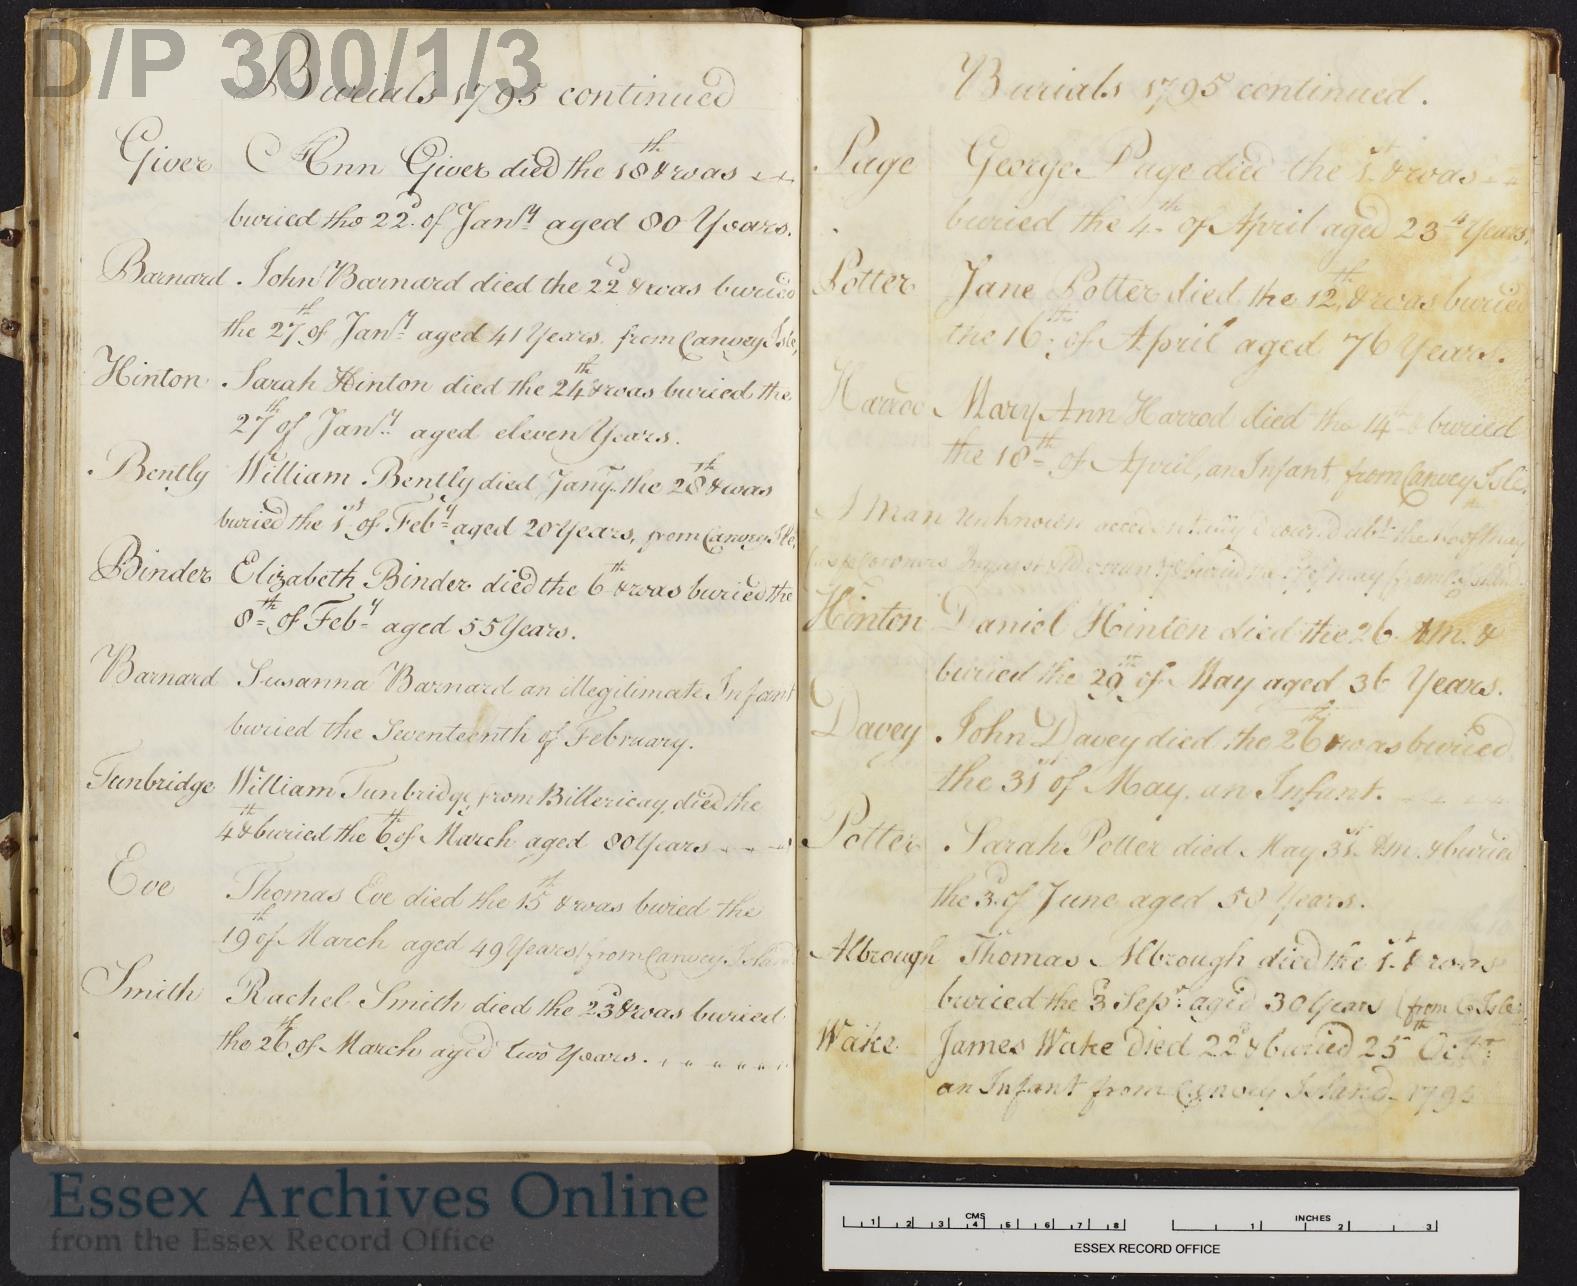 D/P 300/1/3
Burials 1795 continued
Giver Ann Giver died the 18th & was
buried the 22d of Jany aged 80 Years.
Barnard John Barnard died the 22d & was buried
the 27th of Jany aged 41 Years. from Canvey Isle,
Hinton Sarah Hinton died the 24th & was buried the
27th of Jany aged eleven Years.
Bently William Bently died Jany the 28th & was
buried the 1st of Feby aged 20 Years, from Canvey Isle,
Binder Elizabeth Binder died the 6th & was buried the
8th of Feby aged 55 Years.
Barnard Susanna Barnard an illegitimate Infant
buried the Seventeenth of February.
Tunbridge William Tunbridge from Billericay, died the
4th & buried the 6th of March aged 80 Years
Eve Thomas Eve died the 15th & was buried the
19th of March aged 49 Years (from Canvey Island
Smith Rachel Smith died the 23d & was buried
the 26th of March aged two Years.
Burials 1795 continued.
Page George Page died the 1st & was
buried the 4th of April aged 23 Years.
Potter Jane Potter died the 12th & was buried
the 16th of April aged 76 Years.
Harrod Mary Ann Harrod died the 14th & buried
the 18th of April, an Infant, from Canvey Isle.
A Man unknown accidentally drown'd abt the of May
Coroners buried the of May from Island.
Hinton Daniel Hinton died the 26 &
buried the 29th of May aged 36 Years.
Davey John Davey died the 26th & was buried
the 31st of May. an Infant.
Potter Sarah Potter died May 31st & buried
the 3d of June aged 50 Years.
Albrough Thomas Albrough died the 1st & was
buried the 3d Sepr aged 30 Years (from C. Isle
Wake James Wake Died 22d & buried 25th Octr
an Infant from Canvey Island 1795
Essex Archives Online
from the Essex Record Office
CMS
1 2 3 4 5 6 7 8
INCHES
1 2 3
ESSEX RECORD OFFICE